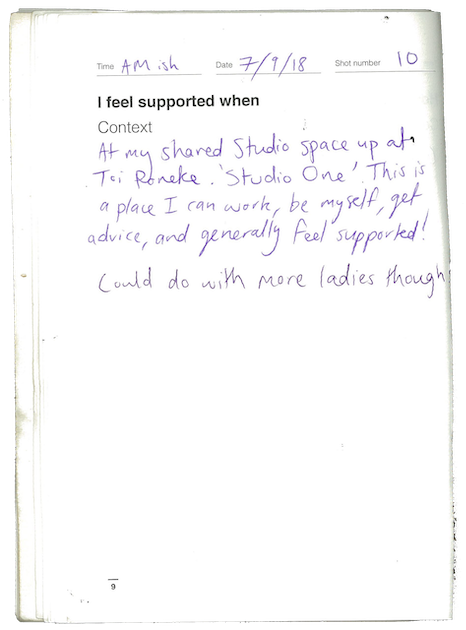 Time AM ish Date 7/9/18 Shot number 10
I feel supported when
Context
At my shared Studio space up at
Toi Poneke. 'Studio One' This is
a place I can work, be myself, get
advice, and generally feel supported!
Could do with more ladies though
9